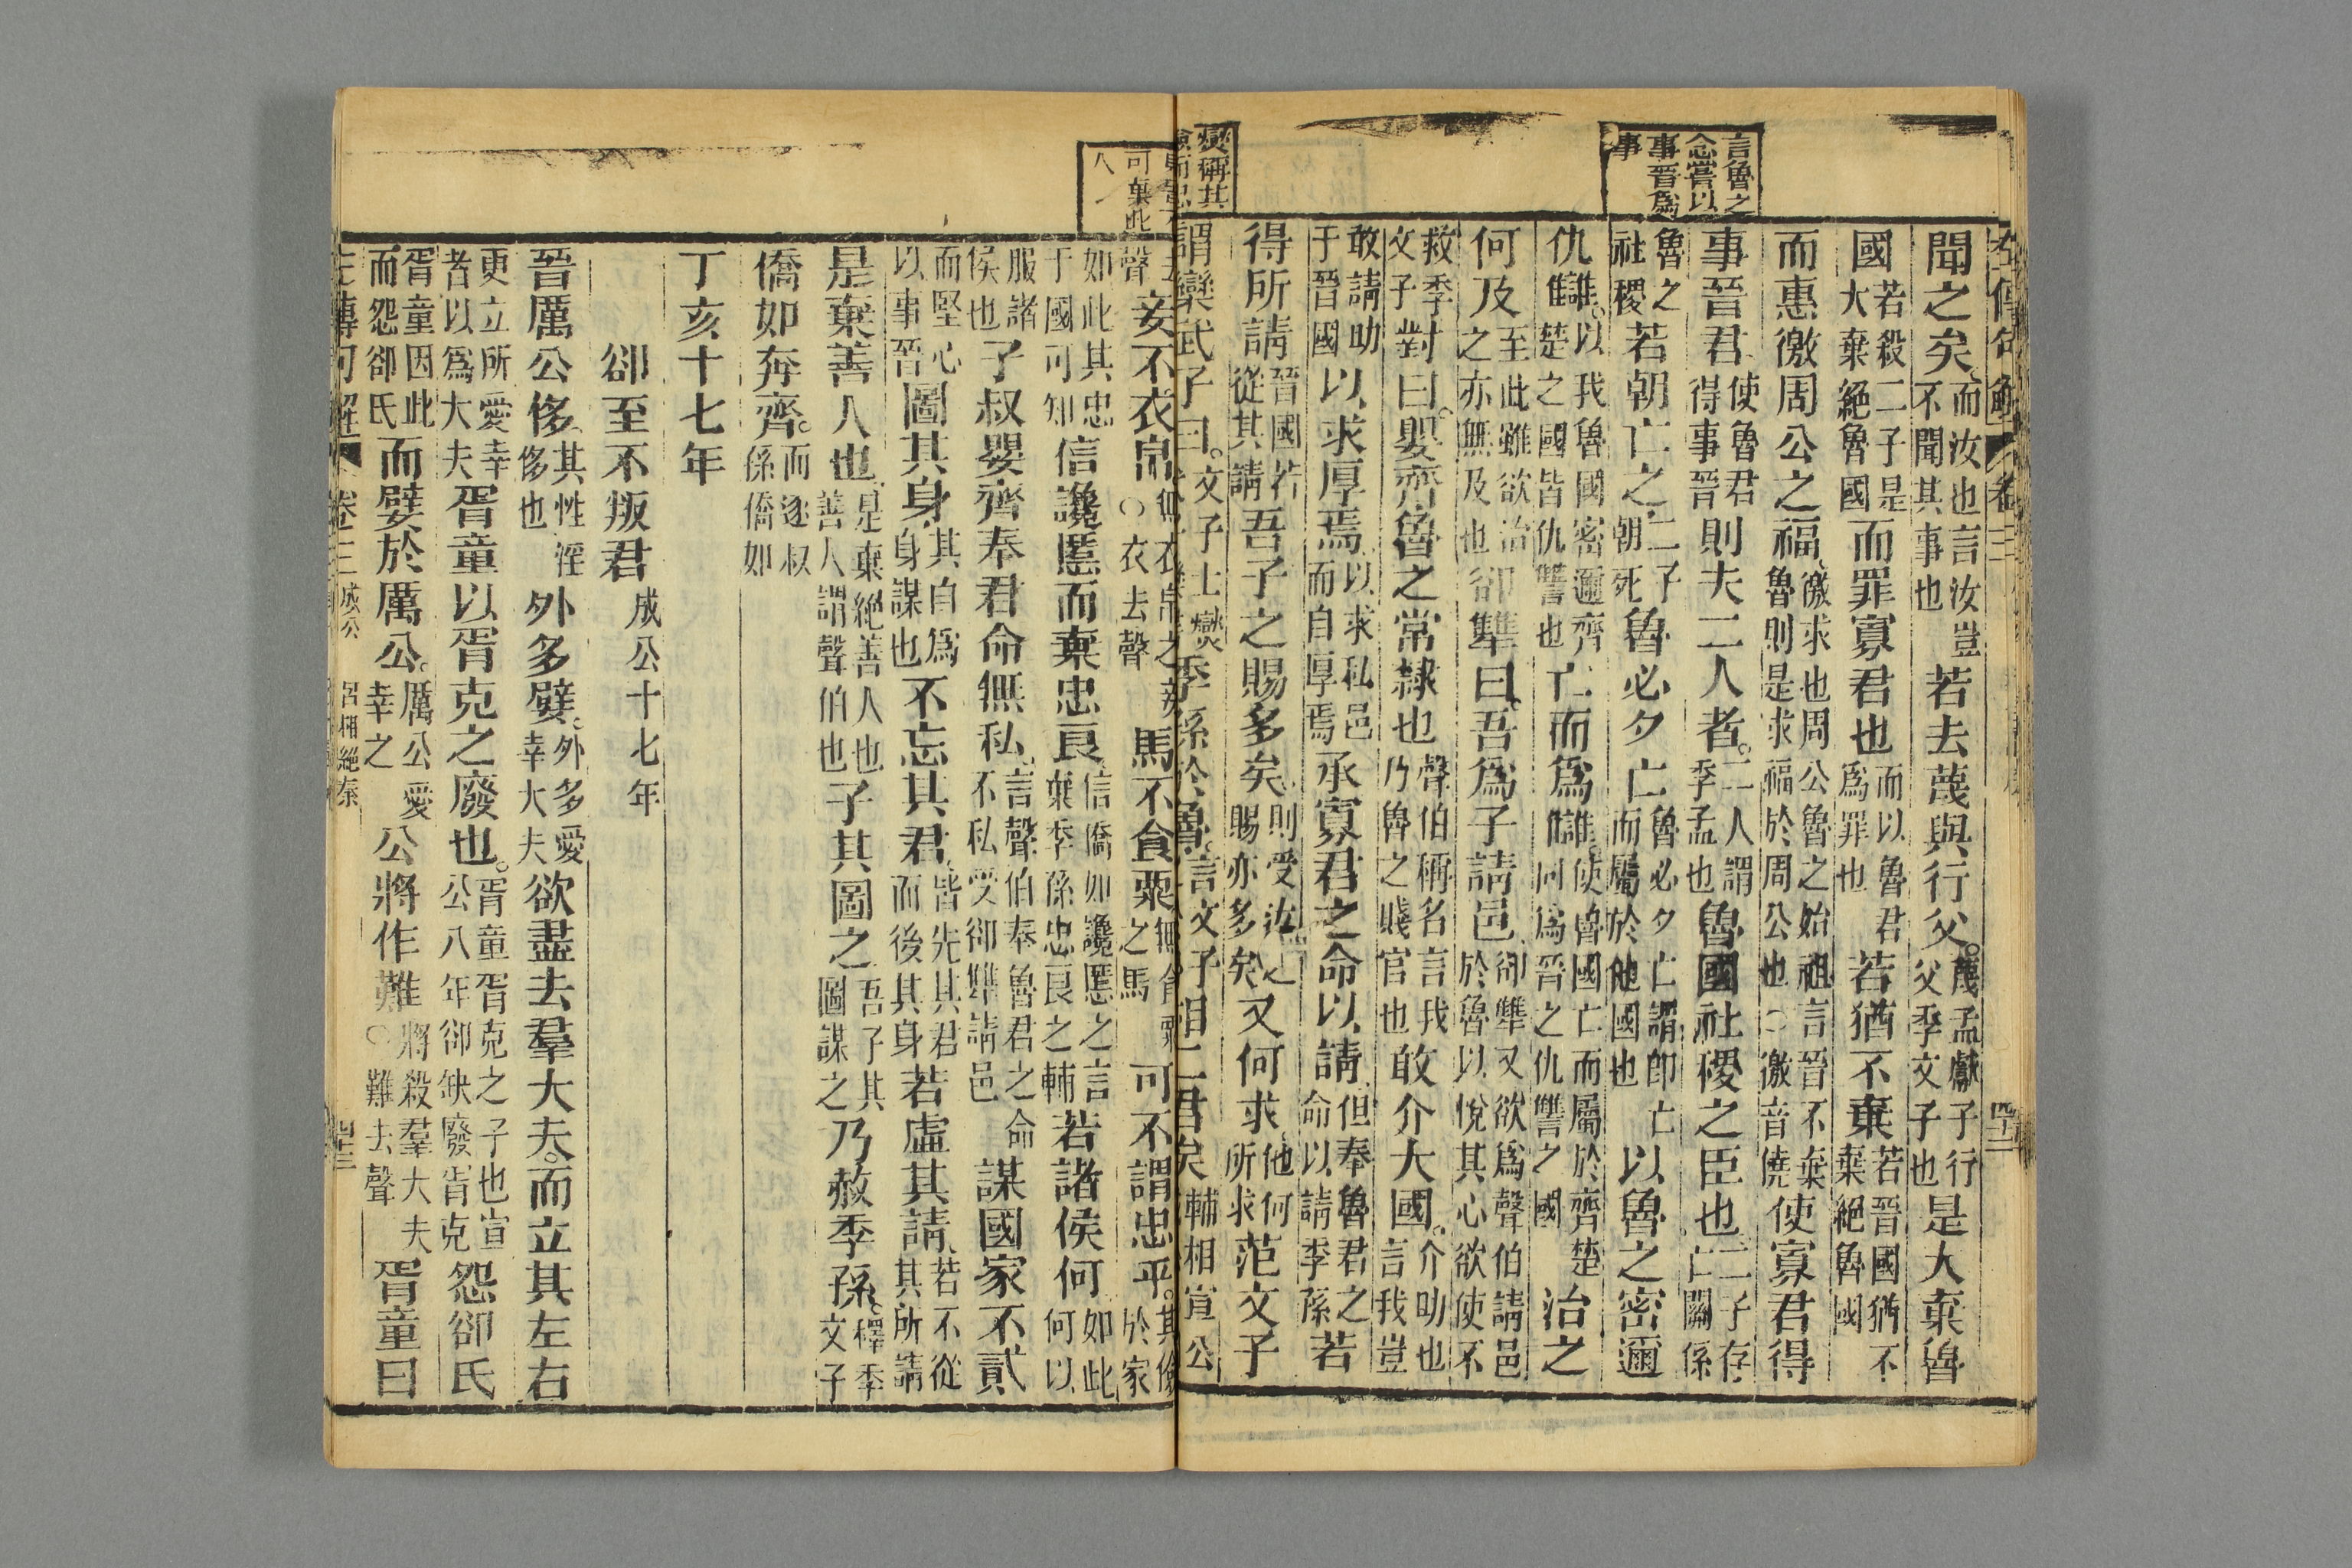 言魯之
念嘗以
事晉爲
事
燮稱其
左傳句解 卷三 四十二
聞之矣而汝也言汝豈不聞其事也若去蔑與行父蔑孟獻子行父季文子也是大棄魯
國若殺二子是大棄絕魯國而罪寡君也而以魯君爲罪也若猶不棄若晉國猶不棄絕魯國
而惠徼周公之福徼求也周公魯之始祖言晉不棄魯則是求福於周公也○徼音僥使寡君得
事晉君使魯君得事晉則夫二人者二人謂季孟也魯國社稷之臣也二子存亡關係
魯之社稷若朝亡之二子朝死魯必夕亡魯必夕亡謂卽亡而屬於他國也以魯之密邇
仇讎以我魯國密邇齊楚之國皆仇讐也亡而爲讎使魯國亡而屬於齊楚同爲晉之仇讐之國治之
何及至此雖欲治之亦無及也郤犫曰吾爲子請邑郤犫又欲爲聲伯請邑於魯以悅其心欲使不
救季文子對曰嬰齊魯之常隸也聲伯稱名言我乃魯之賤官也敢介大國介叻也言我豈
敢請叻于晉國以求厚焉以求私邑而自厚焉承寡君之命以請但奉魯君之命以請季孫若
得所請晉國若從其請吾子之賜多矣則受汝之賜亦多矣又何求他何所求范文子
謂欒武子曰文子士燮季孫於魯言文子相二君矣輔相宣公
可棄此
人
聲妾不衣帛無衣帛之妾○衣去聲馬不食粟無食粟之馬可不謂忠乎其儉於家
如此其忠于國可知信讒慝而棄忠良信僑如讒慝之言棄季孫忠良之輔若諸侯何如此何以
服諸侯也子叔嬰齊奉君命無私言聲伯奉魯君之命不私受郤犫請邑謀國家不貳
而堅心以事晉圖其身其自爲身謀也不忘其君皆先其君而後其身若虛其請若不從其所請
是棄善人也是棄絕善人也善人謂聲伯也子其圖之吾子其圖謀之乃赦季孫釋季文子
僑如奔齊而逐叔孫僑如
丁亥十七年
郤至不叛君成公十七年
晉厲公侈其性淫侈也外多嬖外多愛幸大夫欲盡去羣大夫而立其左右
更立所愛幸者以爲大夫胥童以胥克之廢也胥童胥克之子也宣公八年郤缺廢胥克怨郤氏
胥童因此而怨郤氏而嬖於厲公厲公愛幸之公將作難將殺羣大夫○難去聲胥童曰
左傳句解 卷三 成公 呂相絕秦 四十三